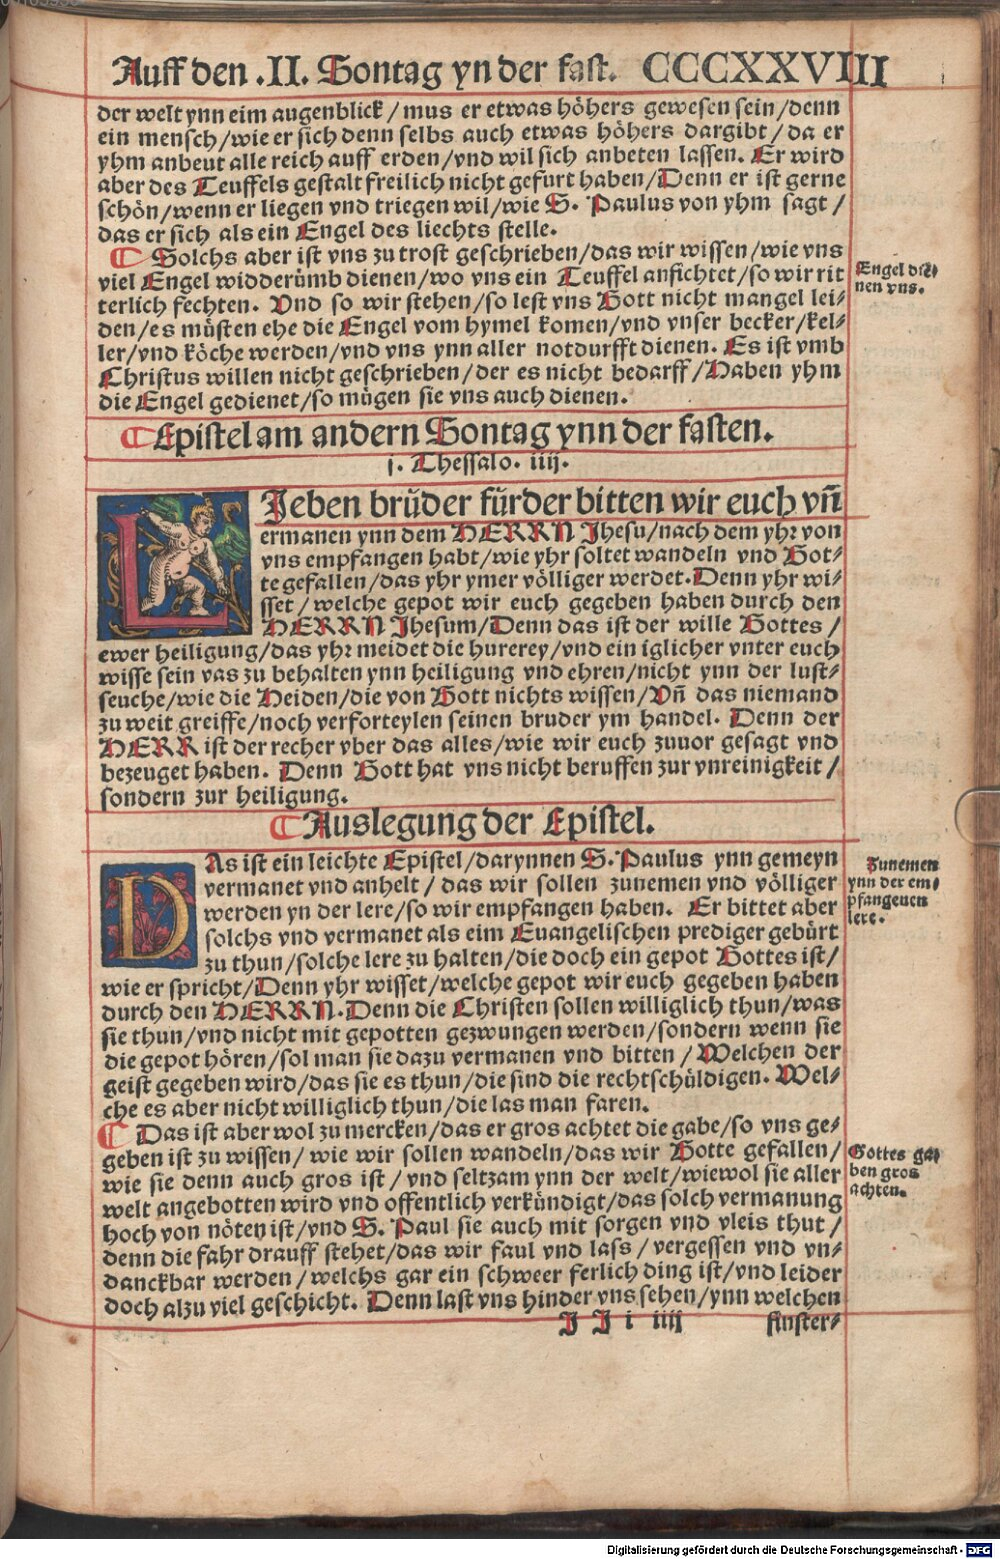 Auff den .II. Sontag yn der fast. CCCXXVIIII
der welt ynn eim augenblick/mus er etwas höhers gewesen sein/denn
ein mensch/wie er sich denn selbs auch etwas höhers dargibt/da er
yhm anbeut alle reich auff erden/vnd wil sich anbeten lassen. Er wird
aber des Teuffels gestalt freilich nicht gefurt haben/Denn er ist gerne
schön/wenn er liegen vnd triegen wil/wie S. Paulus von yhm sagt/
das er sich als ein Engel des liechts stelle.
Solchs aber ist vns zu trost geschrieben/das wir wissen/wie vns
viel Engel widderümb dienen/wo vns ein Teuffel anfichtet/so wir rit
terlich fechten. Vnd so wir stehen/so lest vns Gott nicht mangel lei-
den/es müsten ehe die Engel vom hymel komen/vnd vnser becker/kel-
ler/vnd köche werden/vnd vns ynn aller notdurfft dienen. Es ist vmb
Christus willen nicht geschrieben/der es nicht bedarff/Haben yhm
die Engel gedienet/so mügen sie vns auch dienen.
Engel die-
nen vns.
Epistel am andern Sontag ynn der fasten.
j. Thessalo. iiij.
LIeben brüder fürder bitten wir euch vñ
ermanen ynn dem HERRN Jhesu/nach dem yhr von
vns empfangen habt/wie yhr soltet wandeln vnd Got-
te gefallen/das yhr ymer völliger werdet. Denn yhr wi-
sset/welche gepot wir euch gegeben haben durch den
HERRN Jhesum/Denn das ist der wille Gottes/
ewer heiligung/das yhr meidet die hurerey/vnd ein iglicher vnter euch
wisse sein vas zu behalten ynn heiligung vnd ehren/nicht ynn der lust-
seuche/wie die Heiden/die von Gott nichts wissen/Vñ das niemand
zu weit greiffe/noch verforteylen seinen bruder ym handel. Denn der
HERR ist der recher vber das alles/wie wir euch zuuor gesagt vnd
bezeuget haben. Denn Gott hat vns nicht beruffen zur vnreinigkeit/
sondern zur heiligung.
Auslegung der Epistel.
DAs ist ein leichte Epistel/darynnen S. Paulus ynn gemeyn
vermanet vnd anhelt/das wir sollen zunemen vnd völliger
werden yn der lere/so wir empfangen haben. Er bittet aber
solchs vnd vermanet als eim Euangelischen prediger gebürt
zu thun/solche lere zu halten/die doch ein gepot Gottes ist/
wie er spricht/Denn yhr wisset/welche gepot wir euch gegeben haben
durch den HERRN. Denn die Christen sollen williglich thun/was
sie thun/vnd nicht mit gepotten gezwungen werden/sondern wenn sie
die gepot hören/sol man sie dazu vermanen vnd bitten/Welchen der
geist gegeben wird/das sie es thun/die sind die rechtschüldigen. Wel-
che es aber nicht williglich thun/die las man faren.
Zunemen
ynn der em-
pfangenen
lere.
Das ist aber wol zu mercken/das er gros achtet die gabe/so vns ge-
geben ist zu wissen/wie wir sollen wandeln/das wir Gotte gefallen/
wie sie denn auch gros ist/vnd seltzam ynn der welt/wiewol sie aller
welt angebotten wird vnd offentlich verkündigt/das solch vermanung
hoch von nöten ist/vnd S. Paul sie auch mit sorgen vnd vleis thut/
denn die fahr drauff stehet/das wir faul vnd lass/vergessen vnd vn-
danckbar werden/welchs gar ein schweer ferlich ding ist/vnd leider
doch alzu viel geschicht. Denn last vns hinder vns sehen/ynn welchen
Gottes ga-
ben gros
achten.
J J i iiij finster-
Digitalisierung gefördert durch die Deutsche Forschungsgemeinschaft - DFG